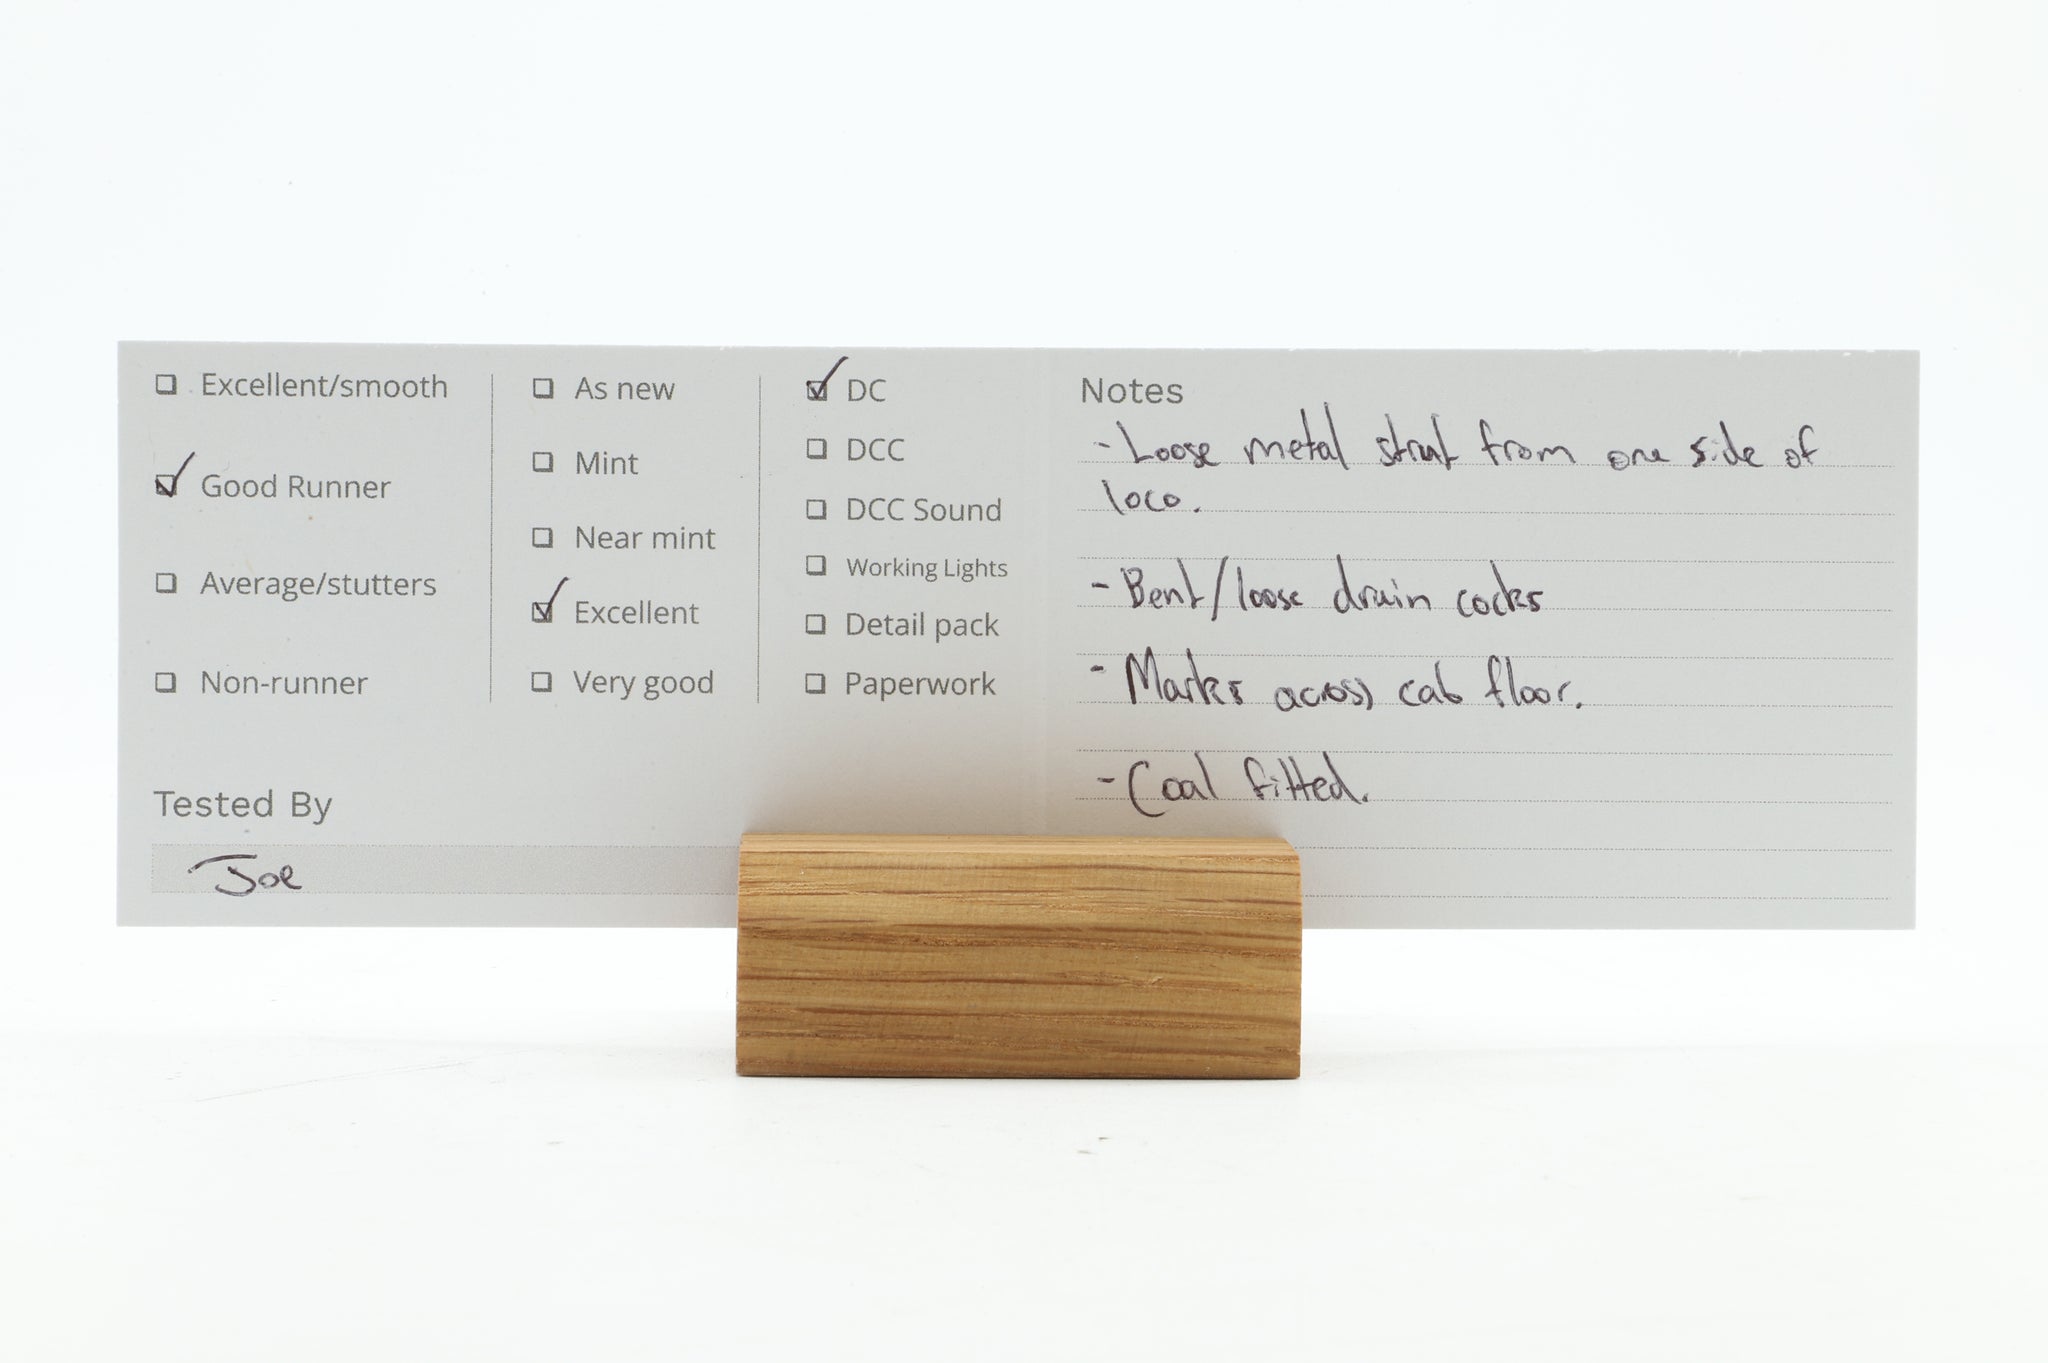 Excellent/smooth
Good Runner
Average/stutters
Non-runner
As new
Mint
Near mint
Excellent
Very good
DC
DCC
DCC Sound
Working Lights
Detail pack
Paperwork
Tested By
Joe
Notes
- Loose metal strut from one side of
loco.
- Bent/loose drain cocks
- Marks across cab floor.
- Coal fitted.